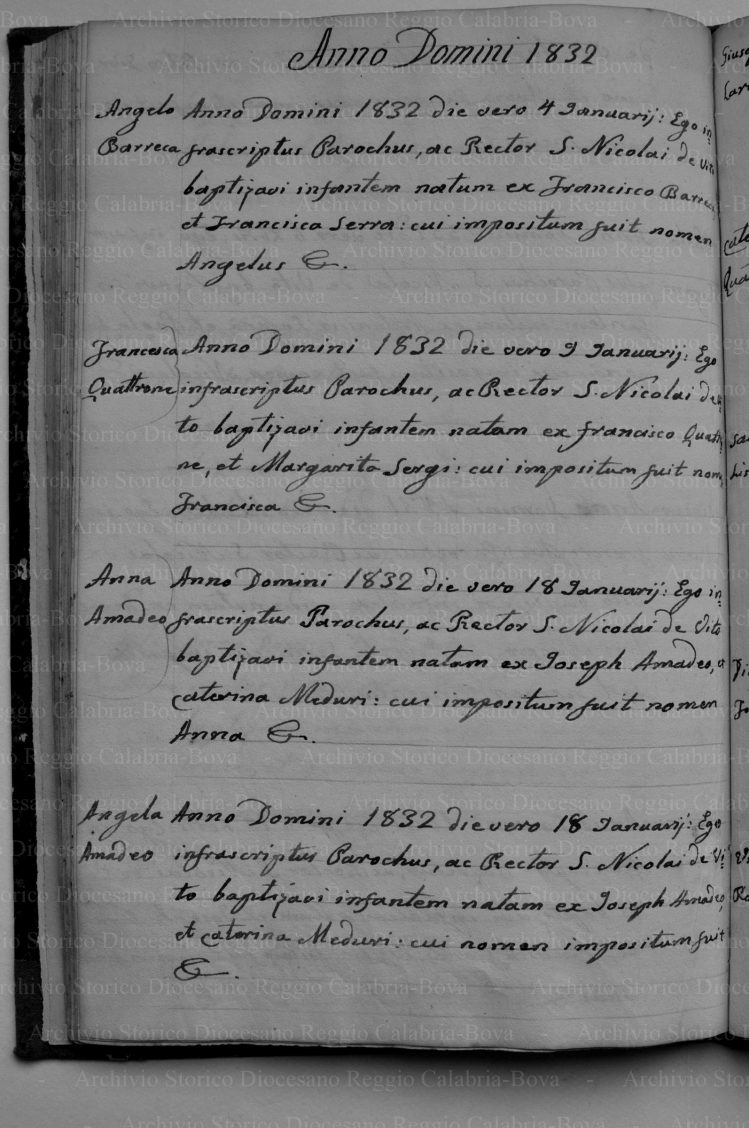 Anno Domini 1832
Angelo Anno Domini 1832 die vero 4 Januarij: Ego in
Barreca frascriptus Parochus, ac Rector S. Nicolai de Vito
baptizavi infantem natum ex Francisco Barreca
et Francisca Serra: cui impositum fuit nomen
Angelus &.
Francesca Anno Domini 1832 die vero 9 Januarij: Ego
Quattrone infrascriptus Parochus, ac Rector S. Nicolai de Vi
to baptizavi infantem natam ex Francisco Quattro
ne, et Margarita Sergi: cui impositum fuit nomen
Francisca &.
Anna Anno Domini 1832 die vero 18 Januarij: Ego in
Amadeo frascriptus Parochus, ac Rector S. Nicolai de Vito
baptizavi infantem natam ex Joseph Amadeo, et
Caterina Meduri: cui impositum fuit nomen
Anna &.
Angela Anno Domini 1832 die vero 18 Januarij: Ego
Amadeo infrascriptus Parochus, ac Rector S. Nicolai de Vi
to baptizavi infantem natam ex Joseph Amadeo,
et Caterina Meduri: cui nomen impositum fuit
&.
Archivio Storico Diocesano Reggio Calabria-Bova